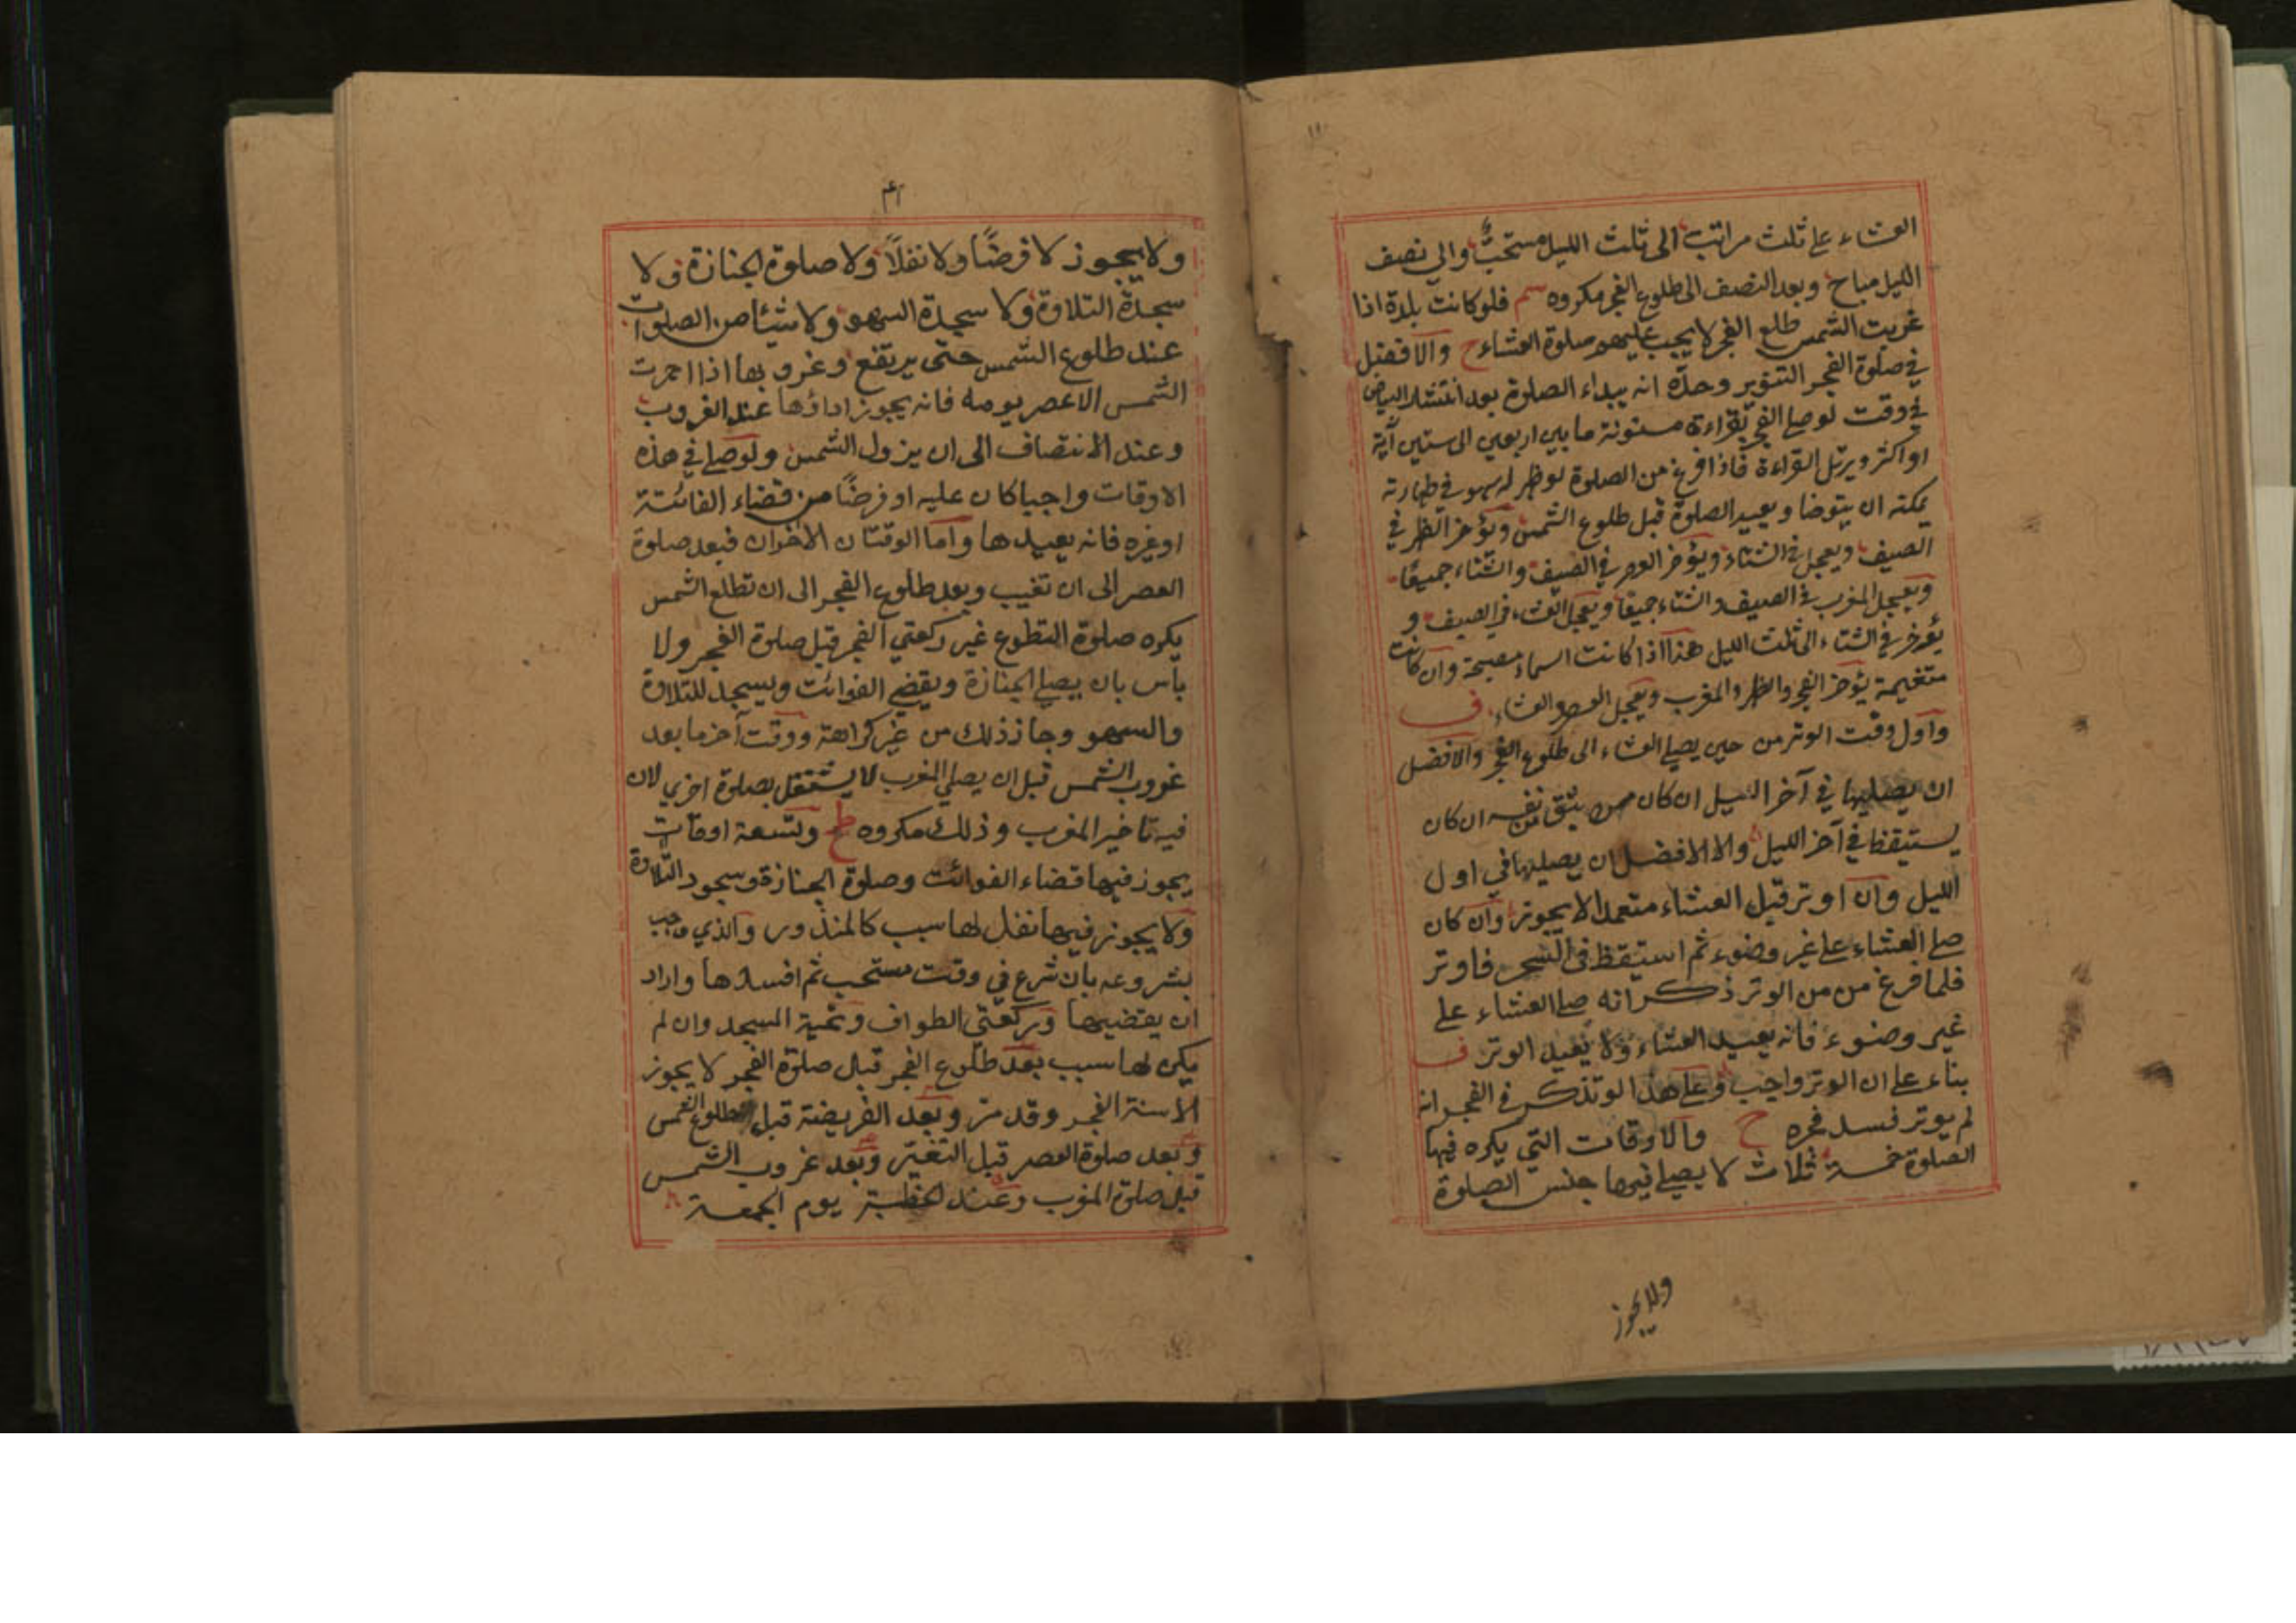 العشاء علي ثلث مراتب الى ثلث الليل مستحبٌّ والي نصف
الليل مباح وبعد النصف الى طلوع الفجر مكروه سم فلو كانت بلدة اذا
غربت الشمس طلع الفجر لا يجب عليهم صلوة العشاء ح والافضل
في صلوة الفجر التنوير وحدّه انه يبداء الصلوة بعد انتشار البياض
في وقت لو صلي الفجر بقراءة مسنونة ما بين اربعين الى ستين آية
او اكثر ويرتل القراءة فاذا فرغ من الصلوة لو ظهر له سهو في طهارته
يمكنه ان يتوضا ويعيد الصلوة قبل طلوع الشمس ويؤخر الظهر في
الصيف ويعجل في الشتاء ويؤخر العصر في الصيف والشتاء جميعًا
ويعجل المغرب في الصيف والشتاء جميعًا ويعجل العشاء في الصيف و
يؤخر في الشتاء الى ثلث الليل هذا اذا كانت السماء مصبحة وان كانت
متغيمة يؤخر الفجر والظهر والمغرب ويعجل العصر والعشاء ف
واول وقت الوتر من حين يصلي العشاء الى طلوع الفجر والافضل
ان يصليها في آخر الليل ان كان يثق نفسه ان كان
يستيقظ في آخر الليل والا الافضل ان يصليها في اول
الليل وان اوتر قبل العشاء متعمدا لا يجوز وان كان
صلي العشاء علي غير وضوء ثم استيقظ في السحر فاوتر
فلما فرغ من من الوتر ذكر انه صلي العشاء علي
غير وضوء فانه يعيد العشاء ولا يعيد الوتر ف
بناء علي ان الوتر واجب وعلي هذا لو تذكر في الفجر انه
لم يوتر فسد فجره ح والاوقات التي يكره فيها
الصلوة خمسة ثلاث لا يصلي فيها جنس الصلوة
ولا يجوز
ولا يجوز لا فرضًا ولا نفلاً ولا صلوة الجنازة ولا
سجدة التلاوة ولا سجدة السهو ولا شيئا من الصلوات
عند طلوع الشمس حتى يرتفع وغروبها اذا احمرت
الشمس الا عصر يومه فانه يجوز اداؤها عند الغروب
وعند الانتصاف الى ان يزول الشمس ولو صلي في هذه
الاوقات واجبا كان عليه او فرضًا من قضاء الفائتة
او غيره فانه يعيدها واما الوقتان الاخران فبعد صلوة
العصر الى ان تغيب وبعد طلوع الفجر الى ان تطلع الشمس
يكره صلوة التطوع غير ركعتي الفجر قبل صلوة الفجر ولا
باس بان يصلي الجنازة ويقضي الفوائت ويسجد للتلاوة
والسهو وجاز ذلك من غير كراهة ووقت آخر ما بعد
غروب الشمس قبل ان يصلي المغرب لا يشتغل بصلوة اخري لان
فيه تاخير المغرب وذلك مكروه ط وتسعة اوقات
يجوز فيها قضاء الفوائت وصلوة الجنازة وسجود التلاوة
ولا يجوز فيها نفل لها سبب كالمنذور والذي وجب
بشروعه بان شرع في وقت مستحب ثم افسدها واراد
ان يقضيها وركعتي الطواف وتحية المسجد وان لم
يكن لها سبب بعد طلوع الفجر قبل صلوة الفجر لا يجوز
الا سنة الفجر وقد مر وبعد الفريضة قبل طلوع الشمس
وبعد صلوة العصر قبل التغيّر وبعد غروب الشمس
قبل صلوة المغرب وعند الخطبة يوم الجمعة